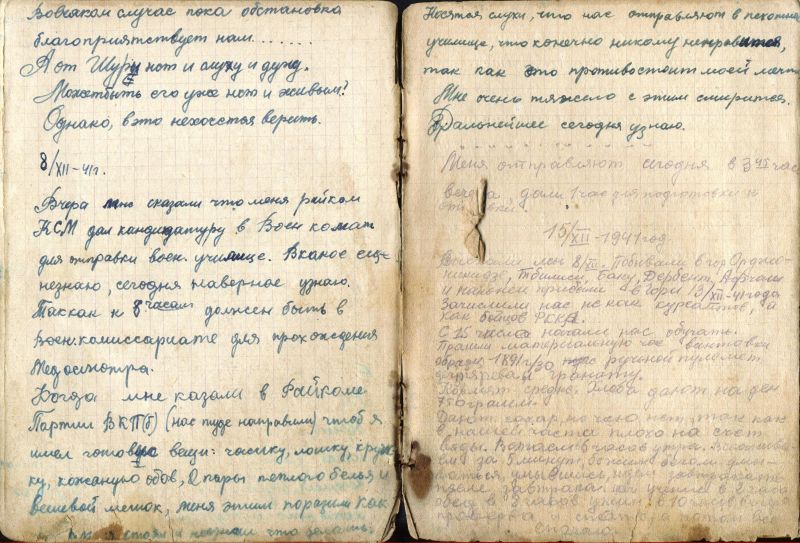 Вовсяком случае пока обстановка
благоприятствует нам.......
А от Шуры нет и слуху и духу.
Может быть его уже нет и живым?
Однако, в это нехочется верить.
8/XII-41г.
Вчера мне сказали что меня райком
КСМ дал кандидатуру в Воен комат
для отправки воен. училище. В какое еще
незнаю, сегодня наверное узнаю.
Так как к 8 часам должен быть в
Воен.комиссариате для прохождения
Медосмотра.
Когда мне сказали в Райкоме
Партии ВКП(б) (нас туда направили) чтоб я
имел готовые вещи: чашку, ложку, круж
ку, кожаную обов, 2 пары теплого белья и
вещевой мешок, меня этим поразили как
стоял и незнал что делать.
Носятся слухи, что нас отправляют в пехотная
училище, что конечно никому ненравится,
так как это противостоит моей мечте
Мне очень тяжело с этим смирится.
Дальнейшее сегодня узнаю.
Меня отправляют сегодня в 3 час
вечера, дали 1 час для подготовки к
15/XII-1941 год.
Выехали мы 8/XII. Побывали в гор Орджо-
никидзе, Тбилиси, Баку, Дербент,
и наконец прибыли в Гори 13/XII-41 года
Зачислили нас не как курсантов, а
как бойцов РККА.
С 15 числа начали нас обучать.
Прошли материальную час винтовки
образ. 1891г/30 ручной пулемет
гранату.
Кормят средне. Хлеба дают на ден
750 грамм.
Дают сахар, но чаю нет, так как
в нашей части плохо на счет
воды. Встаем в 6 часов утра.
за 5 минут,
умывшись, идем завтракать
после завтрака
обед в 3 часов,
проверка и спать, и потом все
сначала.